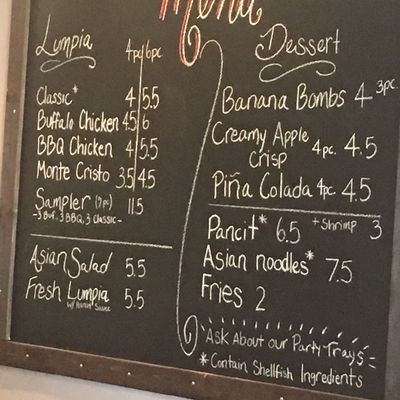 Menu
Lumpia 4pc 6pc
Classic* 4 5.5
Buffalo Chicken 4.5 6
BBQ Chicken 4 5.5
Monte Cristo 3.5 4.5
Sampler (9pc) 11.5
- 3 Buf, 3 BBQ, 3 Classic -
Asian Salad 5.5
Fresh Lumpia 5.5
w/ Peanut Sauce
Dessert
Banana Bombs 4 3pc.
Creamy Apple
Crisp 4pc. 4.5
Piña Colada 4pc. 4.5
Pancit* 6.5 + Shrimp 3
Asian noodles* 7.5
Fries 2
Ask About our Party Trays
*Contain Shellfish Ingredients